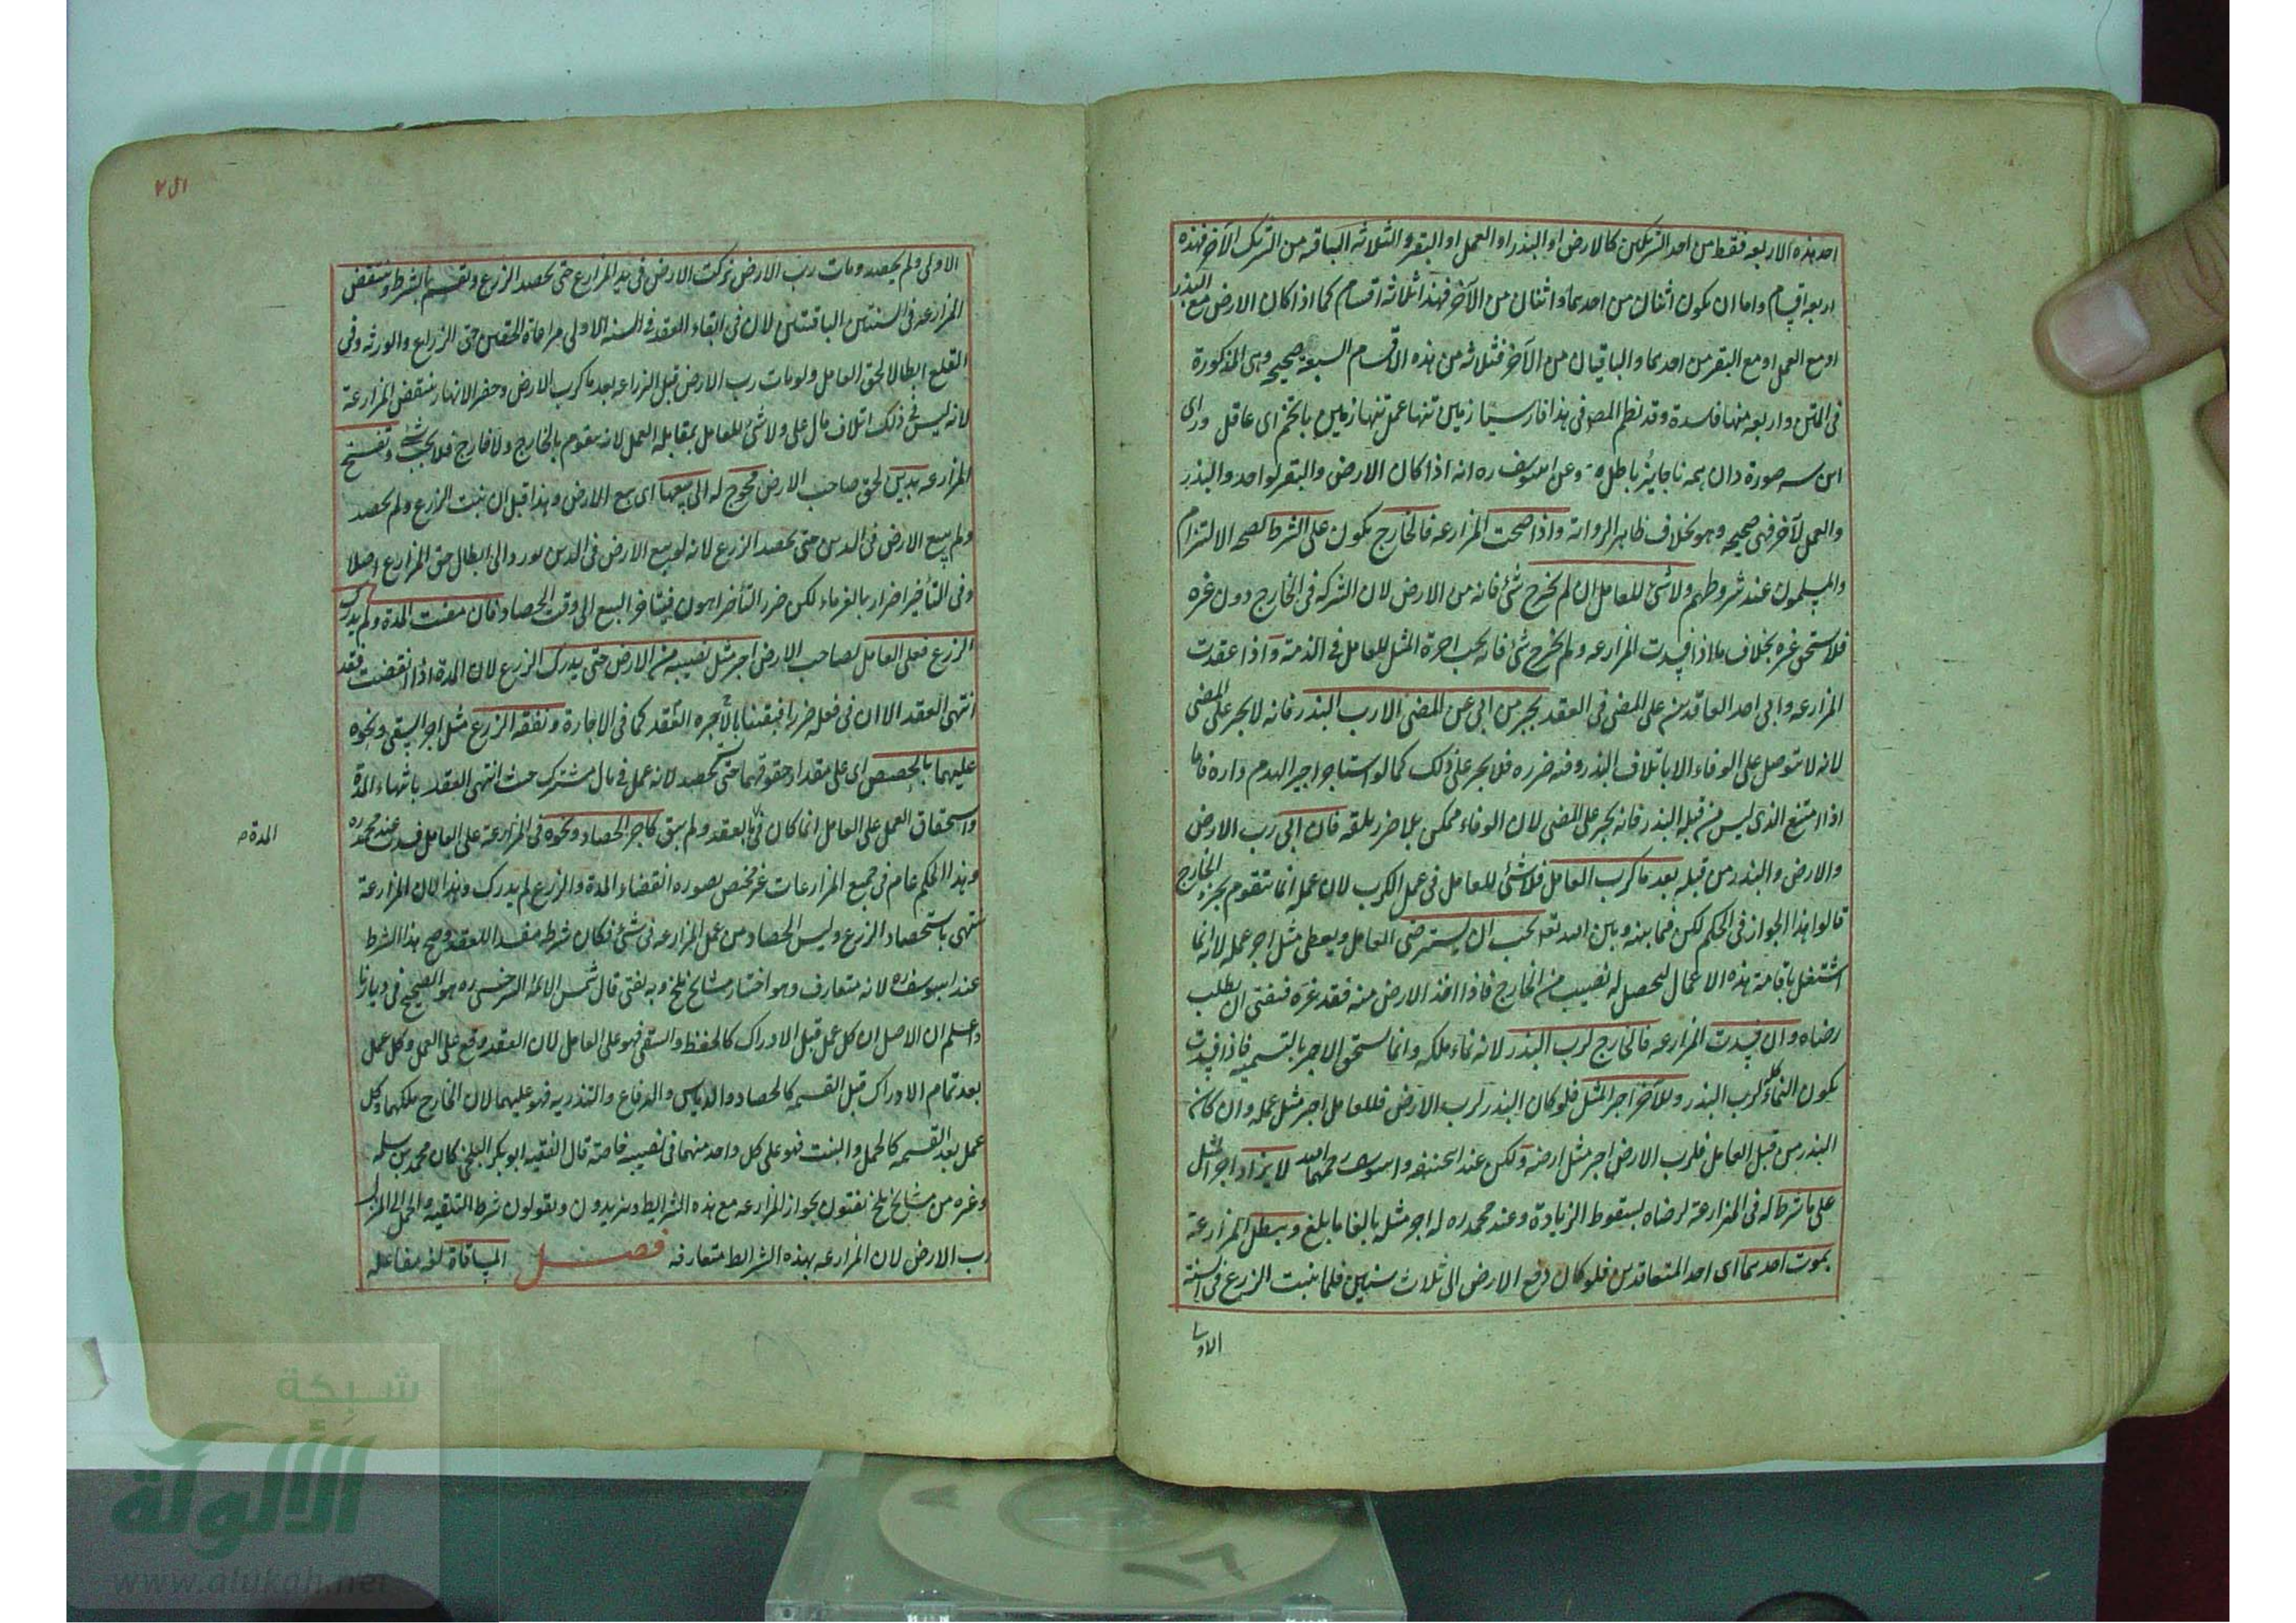 احد هذه الاربعه فقط من احد الشريكين كالارض او البذر او العمل او البقر والثلاثه الباقيه من الشريك الآخر فهذه
اربعه اقسام واما ان يكون اثنان من احدهما واثنان من الآخر فهذا ثلاثه اقسام كما اذا كان الارض مع البذر
او مع العمل او مع البقر من احدهما والباقيان من الآخر فثلاثه من هذه الاقسام السبعة صحيحه وهى المذكورة
فى المتن واربعه منها فاسدة وقد نظم المصـ فى هذا فارسيا زمين تنها عمل تنها زمين با تخم اى عاقل وراى
اين سه صورة دان همه ناجايز باطل وعن ابى يوسف ره انه اذا كان الارض والبقر لواحد والبذر
والعمل لآخر فهى صحيحه وهو بخلاف ظاهر الرواية واذا صحت المزارعه فالخارج يكون على الشرط لصحه الالتزام
والمسلمون عند شروطهم ولا شئ للعامل ان لم يخرج شئ فانه من الارض لان الشركه فى الخارج دون غيره
فلا يستحق غيره بخلاف ما اذا فسدت المزارعه ولم يخرج شئ فانه يجب اجرة المثل للعامل فى الذمة واذا عقدت
المزارعه وابى احد العاقدين على المضى فى العقد يجبر من ابى عن المضى الا رب البذر فانه لا يجبر على المضى
لانه لا يتوصل على الوفاء الا باتلاف البذر وفيه ضرره فلا يجبر على ذلك كما لو استأجر اجير الهدم داره فاما
اذا امتنع الذى ليس من قبله البذر فانه يجبر على المضى لان الوفاء ممكن بلا ضرر يلحقه فان ابى رب الارض
والارض والبذر من قبله بعد ما كرب العامل فلا شئ للعامل فى عمل الكرب لان عمله انما يتقوم بجزء الخارج
قالوا هذا الجواز فى الحكم لكن فيما بينه وبين الله تعـ يجب ان يسترضى العامل ويعطى مثل اجر عمله لانه انما
اشتغل باقامة هذه الاعمال ليحصل له نصيب من الخارج فاذا اخذ الارض منه فقد غره فيفتى ان يطلب
رضاه وان فسدت المزارعه فالخارج لرب البذر لانه نماء ملكه وانما يستحق الاجر بالتسميه فاذا فسدت
يكون النماء كله لرب البذر وللآخر اجر المثل فلو كان البذر لرب الارض فللعامل اجر مثل عمله وان كان
البذر من قبل العامل فلرب الارض اجر مثل ارضه ولكن عند ابى حنيفه وابى يوسف رحمهما الله لا يزاد اجر المثل
على ما شرط له فى المزارعة لرضاه بسقوط الزيادة وعند محمد ره له اجر مثله بالغا ما بلغ ويبطل المزارعة
بموت احدهما اى احد المتعاقدين فلو كان دفع الارض الى ثلاث سنين فلما نبت الزرع فى السنة
الاولى
الاولى ولم يحصد ومات رب الارض تركت الارض فى يد المزارع حتى يحصد الزرع ويقسم بالشرط وينتقض
المزارعه فى السنتين الباقيتين لان فى ابقاء العقد فى السنة الاولى مراعاة الحقين حق الزراع والورثه وفى
القلع ابطالا لحق العامل ولو مات رب الارض قبل الزراعه بعد ما كرب الارض وحفر الانهار ينتقض المزارعة
لانه ليس فى ذلك اتلاف مال على ولا شئ للعامل بمقابله العمل لانه يقوم بالخارج ولا خارج فلا يجب شئ وتفسخ
المزارعه بدين لحق صاحب الارض محوج له الى بيعها اى بيع الارض وهذا قبل ان ينبت الزرع ولم يحصد
ولم يبع الارض فى الدين حتى يحصد الزرع لانه لو بيع الارض فى الدين يودى الى ابطال حق المزارع اصلا
وفى التأخير اضرار بالغرماء لكن ضرر التأخير اهون فيتأخر البيع الى وقت الحصاد فان مضت المدة ولم يدرك
الزرع فعلى العامل لصاحب الارض اجر مثل نصيبه من الارض حتى يدرك الزرع لان المدة اذا انقضت فقد
انتهى العقد الا ان فى قلعه ضررا فبقينا بالاجره العقد كما فى الاجارة ونفقه الزرع مثل اجر السقى ونحوه
عليهما بالحصص اى على مقدار حقوقهما حتى يحصد لانه عمل فى مال مشترك حيث انتهى العقد بانتهاء المدة
واستحقاق العمل على العامل انما كان فى العقد ولم يبق كاجر الحصاد ونحوه فى المزارعة على العامل فسدت عند محمد ره
المدة صح
وهذا الحكم عام فى جميع المزارعات غير مختص بصوره انقضاء المدة والزرع لم يدرك وهذا لان المزارعة
تنتهى باستحصاد الزرع وليس الحصاد من عمل المزارعه فى شئ فكان شرطه مفسدا للعقد وصح هذا الشرط
عند ابى يوسف ره لانه متعارف وهو اختيار مشايخ بلخ وبه يفتى قال شمس الائمة السرخسى ره هو الصحيح فى ديارنا
واعلم ان الاصل ان كل عمل قبل الادراك كالحفظ والسقى فهو على العامل لان العقد وقع على العمل وكل عمل
بعد تمام الادراك قبل القسمه كالحصاد والدياس والرفاع والتذريه فهو عليهما لان الخارج ملكهما وكل
عمل بعد القسمه كالحمل والبيت فهو على كل واحد منهما فى نصيبه خاصة قال الفقيه ابو بكر البلخى كان محمد بن سلمه
وغيره من مشايخ بلخ يفتون بجواز المزارعه مع هذه الشرايط ويزيدون ويقولون شرط التلقيه والحمل الى المنزل
رب الارض لان المزارعه بهذه الشرائط متعارفه فصل المساقاة لغه مفاعله
شبكة
الألوكة
www.alukah.net